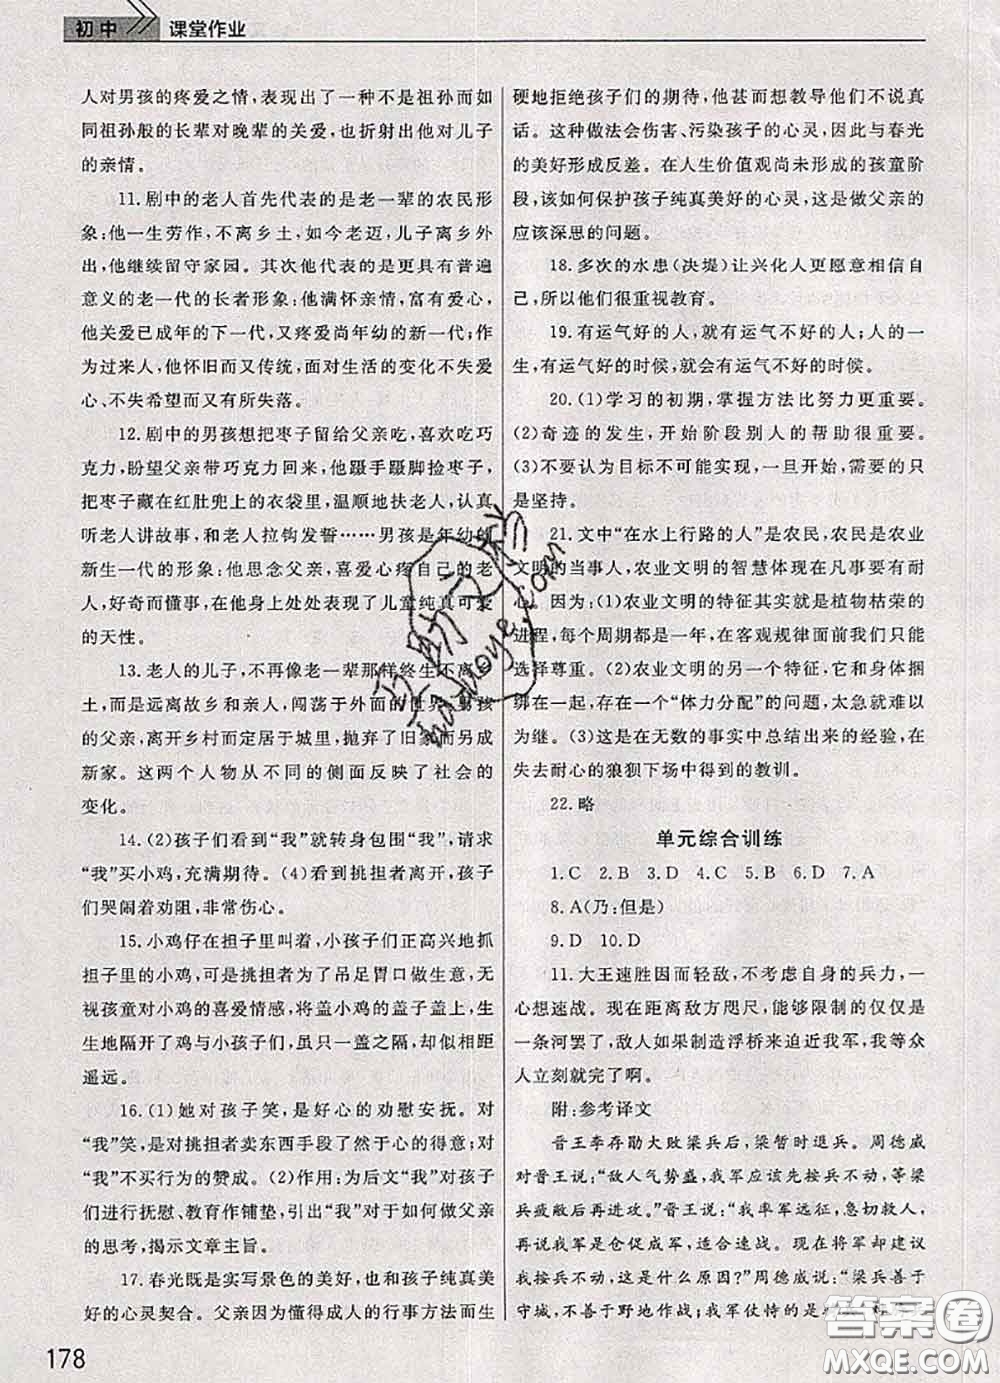 初中
课堂作业
人对男孩的疼爱之情，表现出了一种不是祖孙而如
同祖孙般的长辈对晚辈的关爱，也折射出他对儿子
的亲情。
11.剧中的老人首先代表的是老一辈的农民形
象：他一生劳作，不离乡土，如今老迈，儿子离乡外
出，他继续留守家园。其次他代表的是更具有普遍
意义的老一代的长者形象：他满怀亲情，富有爱心，
他关爱已成年的下一代，又疼爱尚年幼的新一代；作
为过来人，他怀旧而又传统，面对生活的变化不失爱
心、不失希望而又有所失落。
12.剧中的男孩想把枣子留给父亲吃，喜欢吃巧
克力，盼望父亲带巧克力回来，他蹑手蹑脚捡枣子，
把枣子藏在红肚兜上的衣袋里，温顺地扶老人，认真
听老人讲故事，和老人拉钩发誓……男孩是年幼的
新生一代的形象：他思念父亲，喜爱心疼自己的老
人，好奇而懂事，在他身上处处表现了儿童纯真可爱
的天性。
13.老人的儿子，不再像老一辈那样终生不离乡
土，而是远离故乡和亲人，闯荡于外面的世界；男孩
的父亲，离开乡村而定居于城里，抛弃了旧家而另成
新家。这两个人物从不同的侧面反映了社会的
变化。
14.(2)孩子们看到“我”就转身包围“我”，请求
“我”买小鸡，充满期待。(4)看到挑担者离开，孩子
们哭闹着劝阻，非常伤心。
15.小鸡仔在担子里叫着，小孩子们正高兴地抓
担子里的小鸡，可是挑担者为了吊足胃口做生意，无
视孩童对小鸡的喜爱情感，将盖小鸡的盖子盖上，生
生地隔开了鸡与小孩子们，虽只一盖之隔，却相距
遥远。
16.(1)她对孩子笑，是好心的劝慰安抚。对
“我”笑，是对挑担者卖东西手段了然于心的得意；对
“我”不买行为的赞成。(2)作用：为后文“我”对孩子
们进行抚慰、教育作铺垫，引出“我”对于如何做父亲
的思考，揭示文章主旨。
17.春光既是实写景色的美好，也和孩子纯真美
好的心灵契合。父亲因为懂得成人的行事方法而生
178
硬地拒绝孩子们的期待，甚而想教导他们不说真
话。这种做法会伤害、污染孩子的心灵，因此与春光
的美好形成反差。在人生价值观尚未形成的孩童阶
段，该如何保护孩子纯真美好的心灵，这是做父亲的
应该深思的问题。
18.多次的水患(决堤)让兴化人更愿意相信自
己，所以他们很重视教育。
19.有运气好的人，就有运气不好的人；人的一
生，有运气好的时候，就会有运气不好的时候。
20.(1)学习的初期，掌握方法比努力更重要。
(2)奇迹的发生，开始阶段别人的帮助很重要。
(3)不要认为目标不可能实现，一旦开始，需要的只
是坚持。
21.文中“在水上行路的人”是农民，农民是农业
文明的当事人，农业文明的智慧体现在凡事要有耐
心。因为：(1)农业文明的特征其实就是植物枯荣的
进程，每个周期都是一年，在客观规律面前我们只能
选择尊重。(2)农业文明的另一个特征，它和身体捆
绑在一起，存在一个“体力分配”的问题，太急就难以
为继。(3)这是在无数的事实中总结出来的经验，在
失去耐心的狼狈下场中得到的教训。
22.略
单元综合训练
1.C 2.B 3.D 4.C 5.B 6.D 7.A
8.A(乃：但是)
9.D 10.D
11.大王速胜因而轻敌，不考虑自身的兵力，一
心想速战。现在距离敌方咫尺，能够限制的仅仅是
一条河罢了，敌人如果制造浮桥来迫近我军，我等众
人立刻就完了啊。
附：参考译文
晋王李存勖大败梁兵后，梁暂时退兵。周德威
对晋王说：“敌人气势盛，我军应该先按兵不动，等梁
兵疲敝后再进攻。”晋王说：“我率军远征，急切救人，
再说我军是仓促成军，适合速战。现在将军却建议
我按兵不动，这是什么原因？”周德威说：“梁兵善于
守城，不善于野地作战；我军仗恃的是
答案圈
MXQE.COM